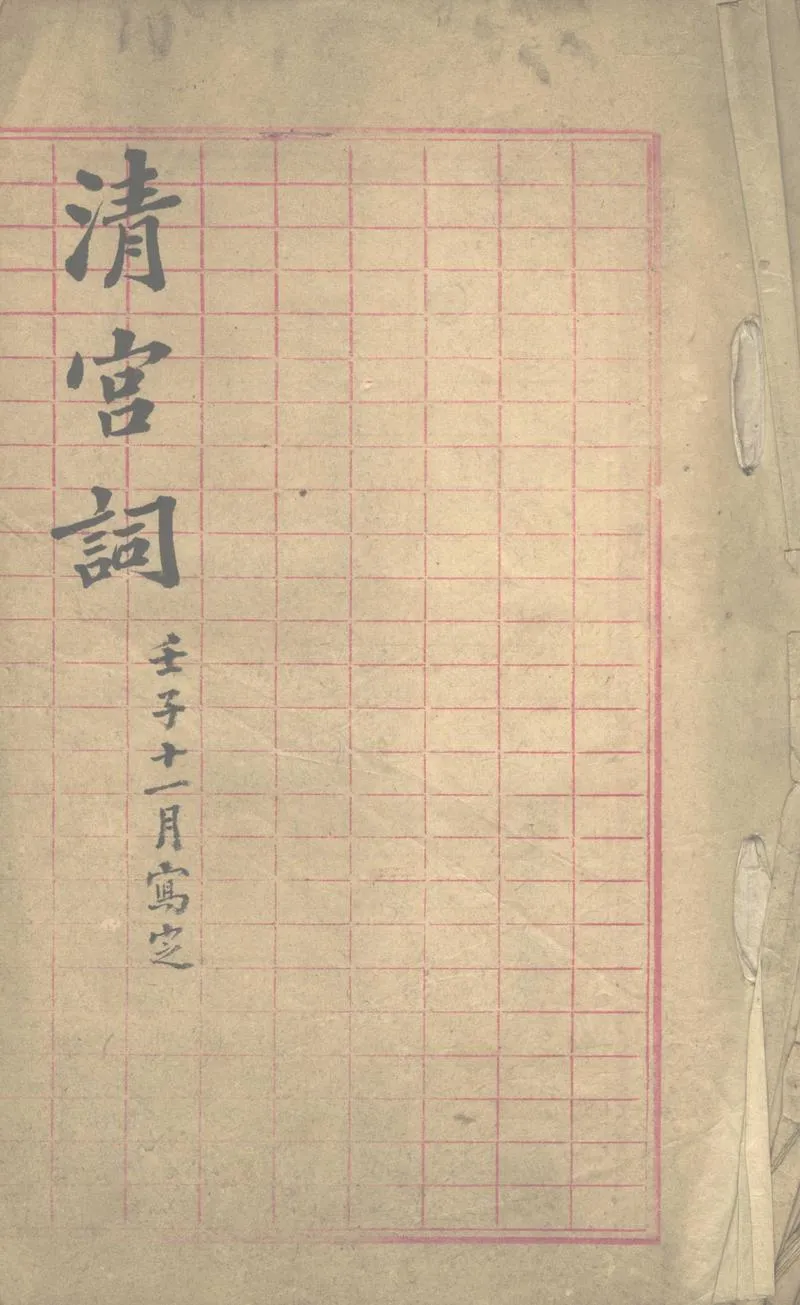 清宮詞
壬子十一月寫定